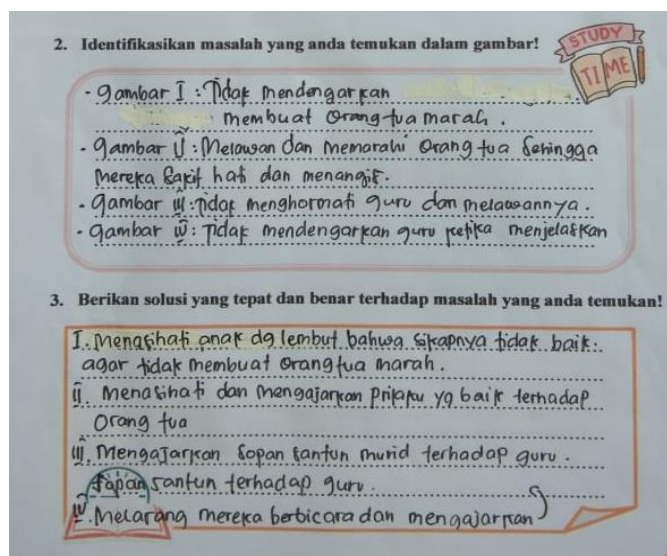 2. Identifikasikan masalah yang anda temukan dalam gambar!
STUDY
TIME
- gambar I : Tidak mendengarkan
membuat orang tua marah.
- gambar II : Melawan dan memarahi orang tua sehingga
mereka sakit hati dan menangis.
- gambar III : Tidak menghormati guru dan melawannya.
- gambar IV : Tidak mendengarkan guru ketika menjelaskan
3. Berikan solusi yang tepat dan benar terhadap masalah yang anda temukan!
I. Menasihati anak dg lembut bahwa sikapnya tidak baik.
agar tidak membuat orang tua marah.
II. Menasihati dan mengajarkan prilaku yg baik terhadap
orang tua
III. Mengajarkan sopan santun murid terhadap guru.
sopan santun terhadap guru.
IV. Melarang mereka berbicara dan mengajarkan